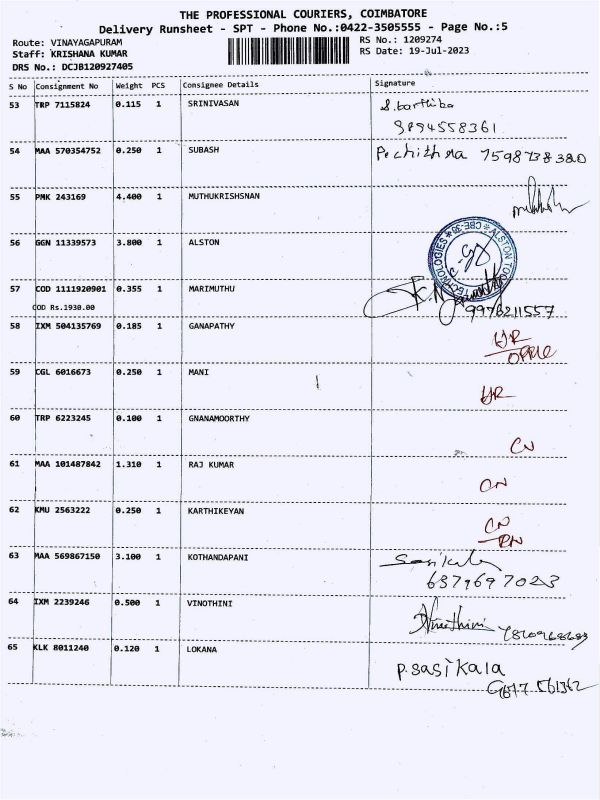 THE PROFESSIONAL COURIERS, COIMBATORE
Delivery Runsheet - SPT - Phone No.:0422-3505555 - Page No.:5
Route: VINAYAGAPURAM RS No.: 1209274
Staff: KRISHANA KUMAR RS Date: 19-Jul-2023
DRS No.: DCJB120927405
S No Consignment No Weight PCS Consignee Details Signature
53 TRP 7115824 0.115 1 SRINIVASAN S.barthiba
9894558361
54 MAA 570354752 0.250 1 SUBASH Pechithra 7598738380
55 PMK 243169 4.400 1 MUTHUKRISHSNAN
56 GGN 11339573 3.800 1 ALSTON
ALSTON TECHNOLOGIES CBE-35
57 COD 1111920901 0.355 1 MARIMUTHU
COD Rs.1930.00 9976211557
58 IXM 504135769 0.185 1 GANAPATHY
59 CGL 6016673 0.250 1 MANI
60 TRP 6223245 0.100 1 GNANAMOORTHY CN
61 MAA 101487842 1.310 1 RAJ KUMAR ON
62 KMU 2563222 0.250 1 KARTHIKEYAN CN
63 MAA 569867150 3.100 1 KOTHANDAPANI Sasikala
64 IXM 2239246 0.500 1 VINOTHINI Vinothini
65 KLK 8011240 0.120 1 LOKANA P.sasikala